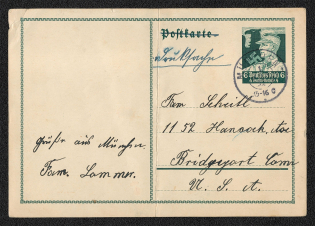 Postkarte
Drucksache
Deutsches Reich
6 6
15-16
Fam. Scheitt
1152 Hancock, Ave
Bridgeport Conn
U. S. A.
Grüße aus München
Fam. Sommer.